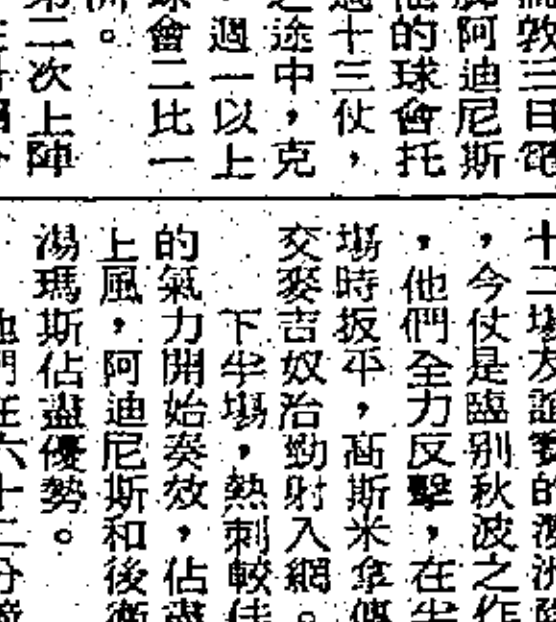 敦三日電
阿迪尼斯
的球會托
十三仗，
途中，克
週一以上
會二比一
。
二次上陣
十二場友誼賽的澳洲
，今仗是臨別秋波之作
，他們全力反擊，在半
場時扳平，高斯米拿傳
交麥吉奴治勁射入網。
下半場，熱刺較佳
的氣力開始奏效，佔盡
上風，阿迪尼斯和後衛
湯瑪斯佔盡優勢。
他們在六十二分